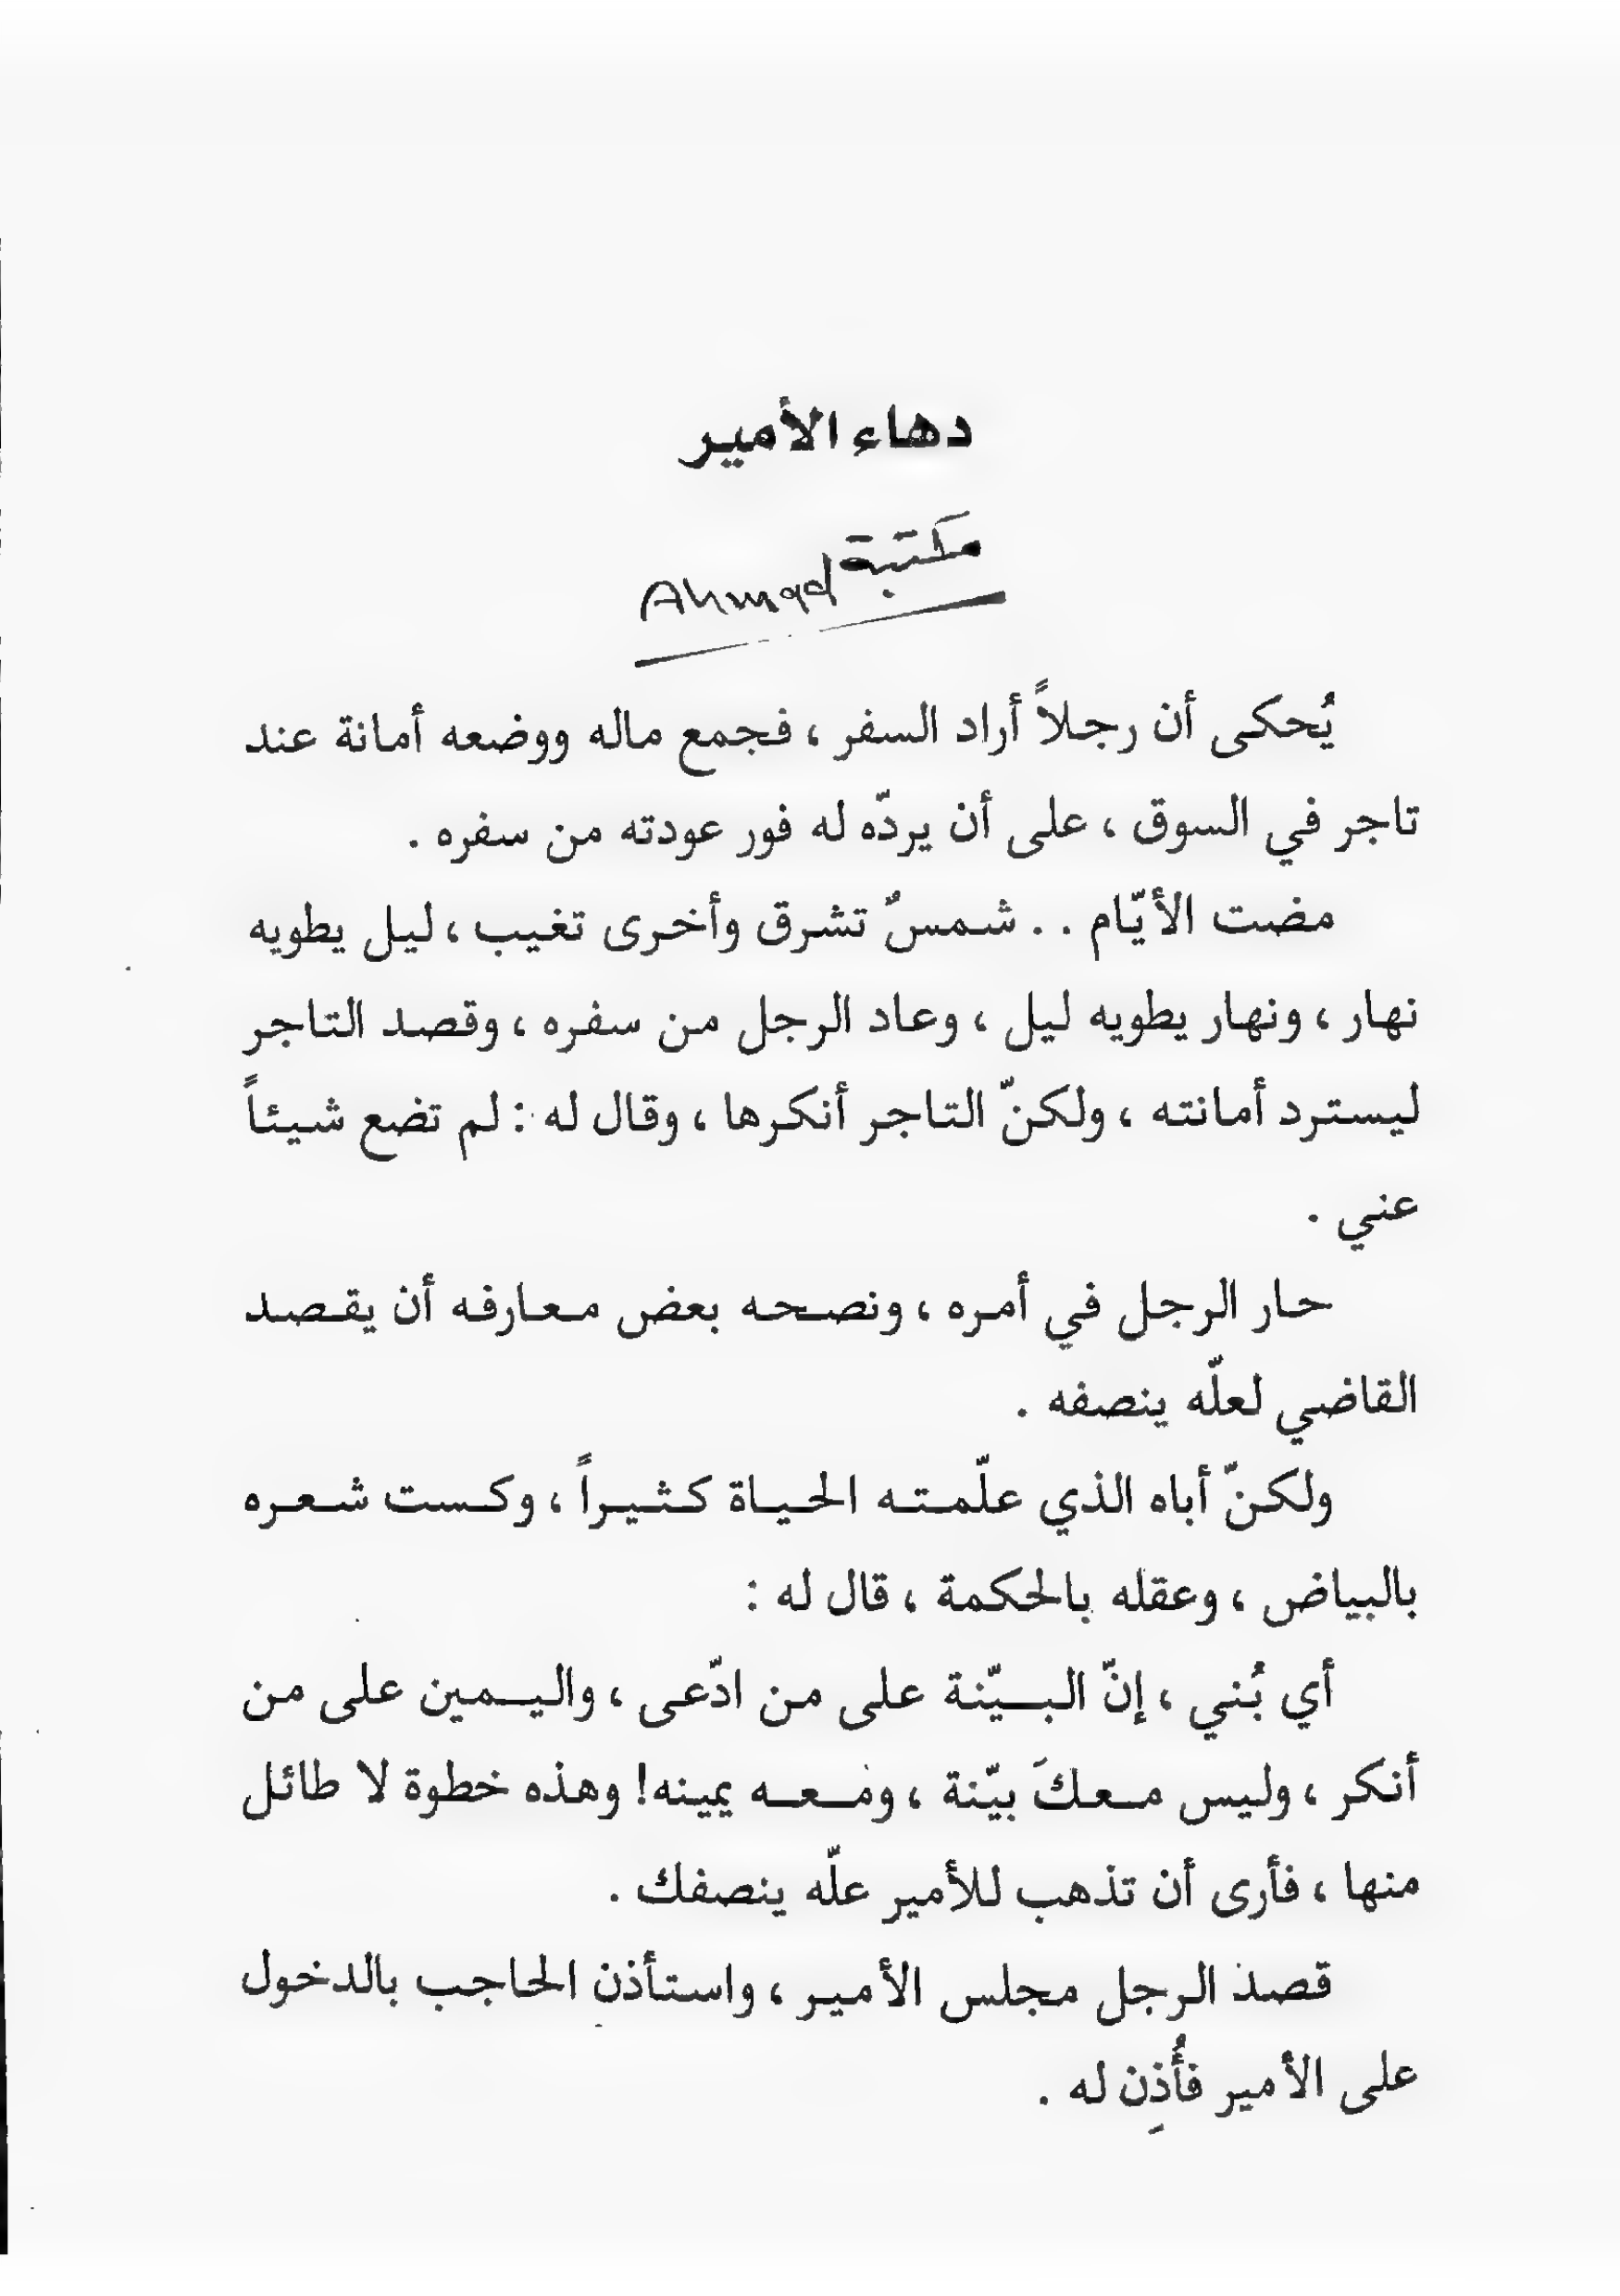 دهاء الأمير
مكتبة
Ahmad
يُحكى أن رجلاً أراد السفر ، فجمع ماله ووضعه أمانة عند
تاجر في السوق ، على أن يردّه له فور عودته من سفره .
مضت الأيّام . . شمسٌ تشرق وأخرى تغيب ، ليل يطويه
نهار ، ونهار يطويه ليل ، وعاد الرجل من سفره ، وقصد التاجر
ليسترد أمانته ، ولكنّ التاجر أنكرها ، وقال له : لم تضع شيئاً
عني .
حار الرجل في أمره ، ونصحه بعض معارفه أن يقصد
القاضي لعلّه ينصفه .
ولكنّ أباه الذي علّمته الحياة كثيراً ، وكست شعره
بالبياض ، وعقله بالحكمة ، قال له :
أي بُني ، إنّ البيّنة على من ادّعى ، واليمين على من
أنكر ، وليس معكَ بيّنة ، ومعه يمينه! وهذه خطوة لا طائل
منها ، فأرى أن تذهب للأمير علّه ينصفك .
قصد الرجل مجلس الأمير ، واستأذن الحاجب بالدخول
على الأمير فأُذِن له .